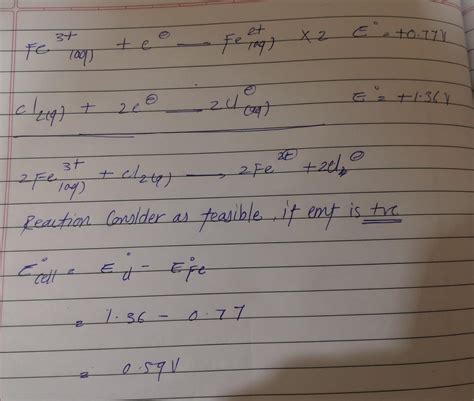 Fe³⁺(aq) + e⊖ — Fe²⁺(aq) × 2 E° = +0.77V
Cl₂(g) + 2e⊖ — 2Cl⊖(aq) E° = +1.36V
2Fe³⁺(aq) + Cl₂(g) → 2Fe + 2Cl⊖
Reaction Consider as feasible, if emf is +ve
E°cell = E°cl - E°Fe
= 1.36 - 0.77
= 0.59V